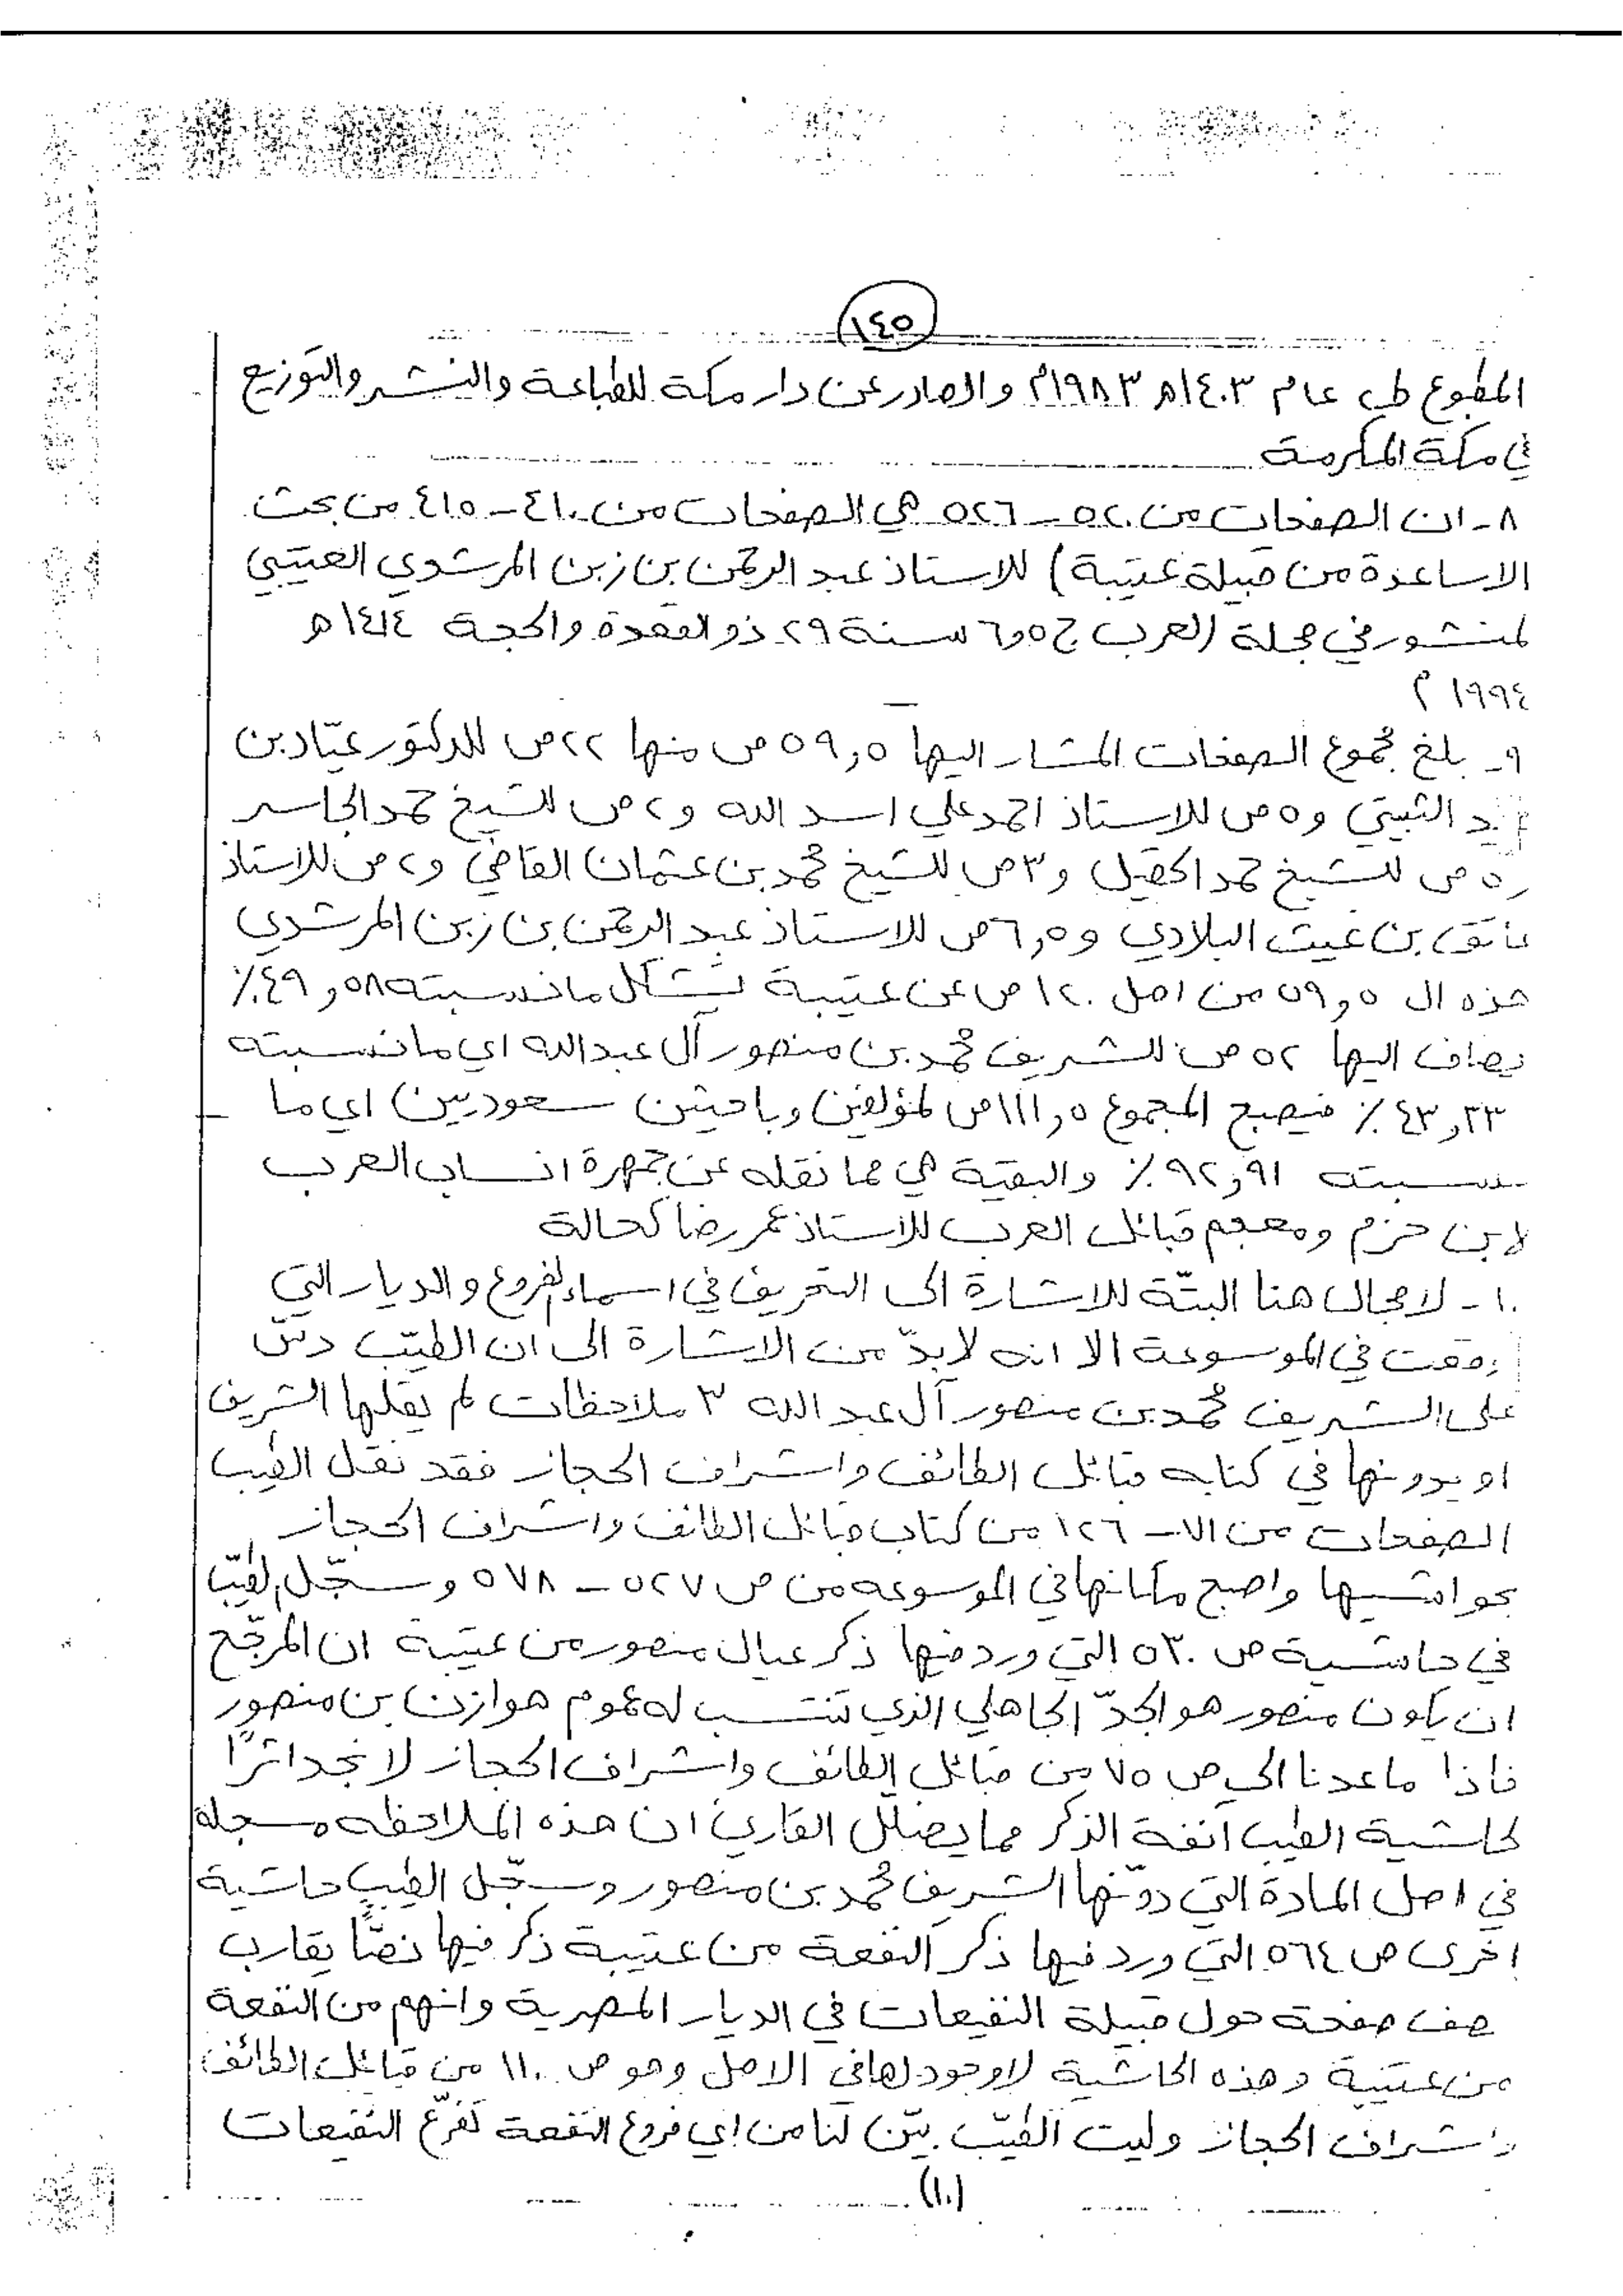 ١٤٥
المطبوع ط١ عام ١٤٠٣هـ ١٩٨٣م والصادر عن دار مكة للطباعة والنشر والتوزيع
في مكة المكرمة
٨ـ ان الصفحات من ٥٢٠ – ٥٢٦ هي الصفحات من ٤١٠ – ٤١٥ من بحث
الاساعدة من قبيلة عتيبة) للاستاذ عبد الرحمن بن زبن المرشدي العتيبي
لمنشور في مجلة (العرب ج٥و٦ سنة ٢٩ ذو القعدة والحجة ١٤١٤هـ
١٩٩٤م
٩ـ بلغ مجموع الصفحات المشار اليها ٥٩,٥ ص منها ٢٢ص للدكتور عيّاد بن
يد الثبيتي و٥ص للاستاذ احمد علي اسد الله و٢ص للشيخ حمد الجاسر
ص للشيخ حمد الحقيل و٣ص للشيخ محمد بن عثمان القاضي و٢ص للاستاذ
عاتق بن غيث البلادي و٦,٥ص للاستاذ عبد الرحمن بن زبن المرشدي
هذه ال ٥٩,٥ من اصل ١٢٠ص عن عتيبة تشكل مانسبته ٤٩,٥٨٪
يضاف اليها ٥٢ ص للشريف محمد بن منصور آل عبدالله اي مانسبته
٤٣,٣٣٪ فيصبح المجموع ١١١,٥ص لمؤلفين وباحثين سعوديين اي ما
نسبته ٩٢,٩١٪ والبقية هي مما نقله عن جمهرة انساب العرب
لابن حزم ومعجم قبائل العرب للاستاذ عمر رضا كحالة
١٠ـ لامجال هنا البتّة للاشارة الى التحريف في اسماء الفروع والديار التي
وقعت في الموسوعة الا انه لابدّ من الاشارة الى ان الطيّب دسّ
على الشريف محمد بن منصور آل عبد الله ٣ ملاحظات لم يقلها الشريف
او يدونها في كتابه قبائل الطائف واشراف الحجاز فقد نقل الطيب
الصفحات من ٧١ – ١٢٦ من كتاب قبائل الطائف واشراف الحجاز
بحواشيها واصبح مكانها في الموسوعه من ص ٥٢٧ – ٥٧٨ وسجّل الطيّب
في حاشية ص ٥٣٠ التي ورد فيها ذكر عيال منصور من عتيبة ان المرجّح
ان يكون منصور هو الجدّ الجاهلي الذي تنتسب له عموم هوازن بن منصور
فاذا ماعدنا الى ص ٧٥ من قبائل الطائف واشراف الحجاز لا نجد اثرًا
لحاشية الطيب آنفة الذكر مما يضلل القارئ ان هذه الملاحظه مسجله
في اصل المادة التي دوّنها الشريف محمد بن منصور وسجّل الطيب حاشية
اخرى ص ٥٦٤ التي ورد فيها ذكر النفعة من عتيبة ذكر فيها نصًّا يقارب
نصف صفحة حول قبيلة النفيعات في الديار المصرية وانهم من النفعة
من عتيبة وهذه الحاشية لاوجود لها في الاصل وهو ص ١١٠ من قبائل الطائف
واشراف الحجاز وليت الطيّب بيّن لنا من اي فروع النفعة تفرّع النفيعات
(١٠)